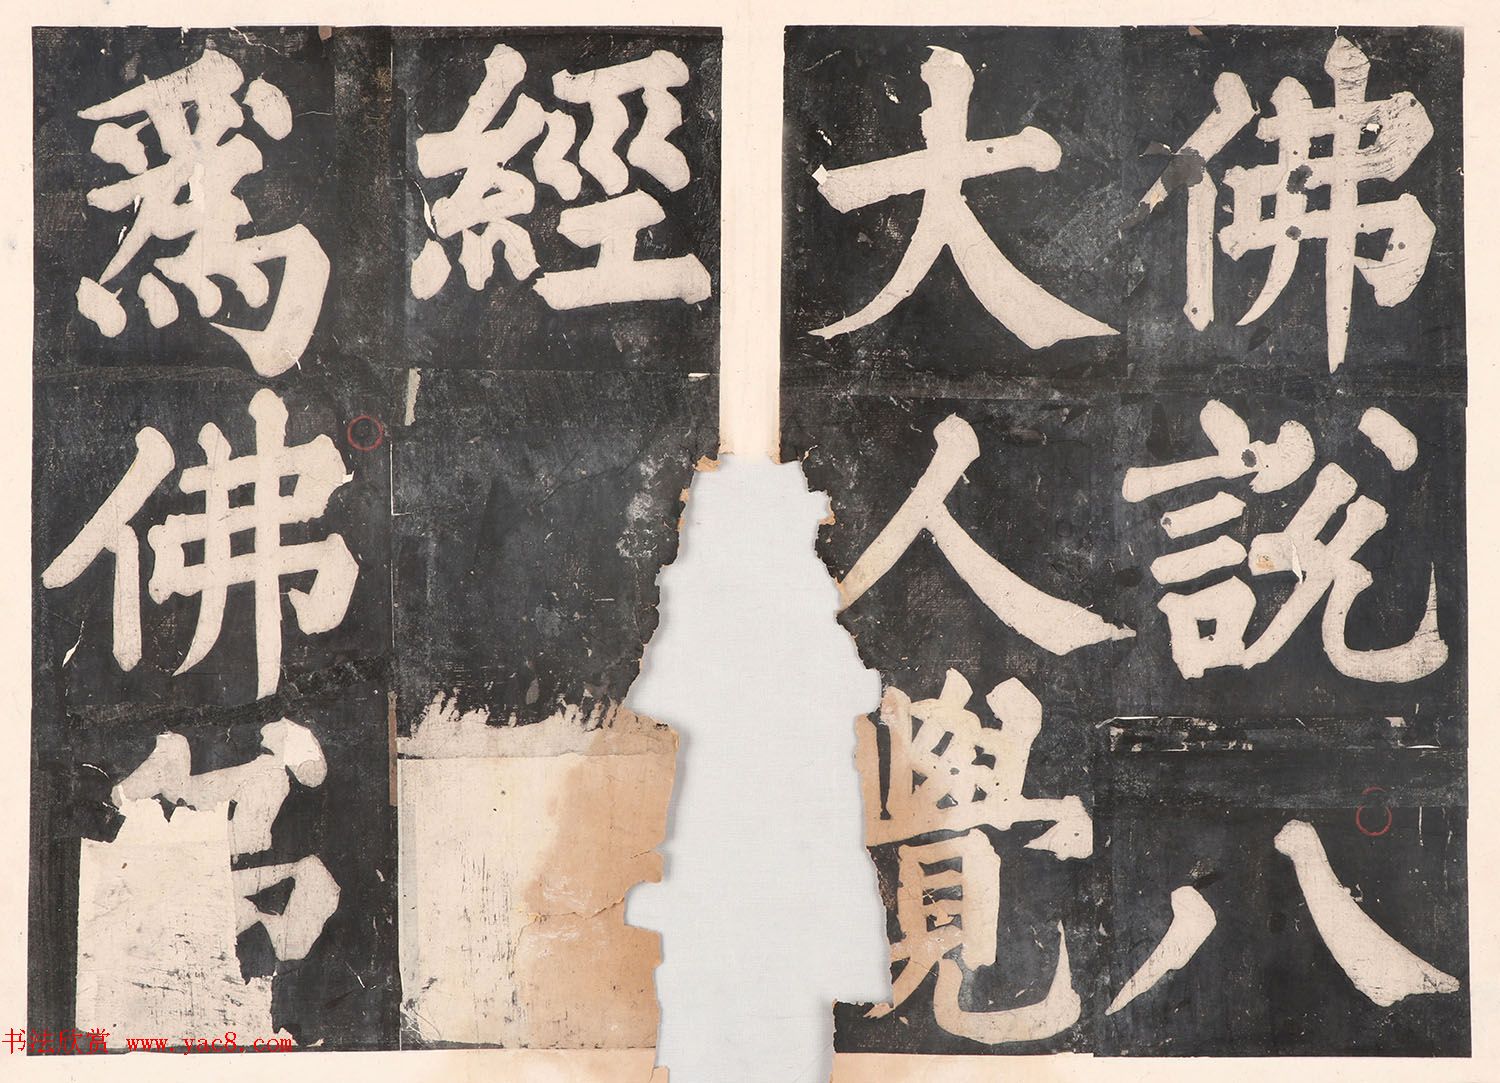 佛說八
大人覺
經
爲佛
书法欣赏 www.yac8.com